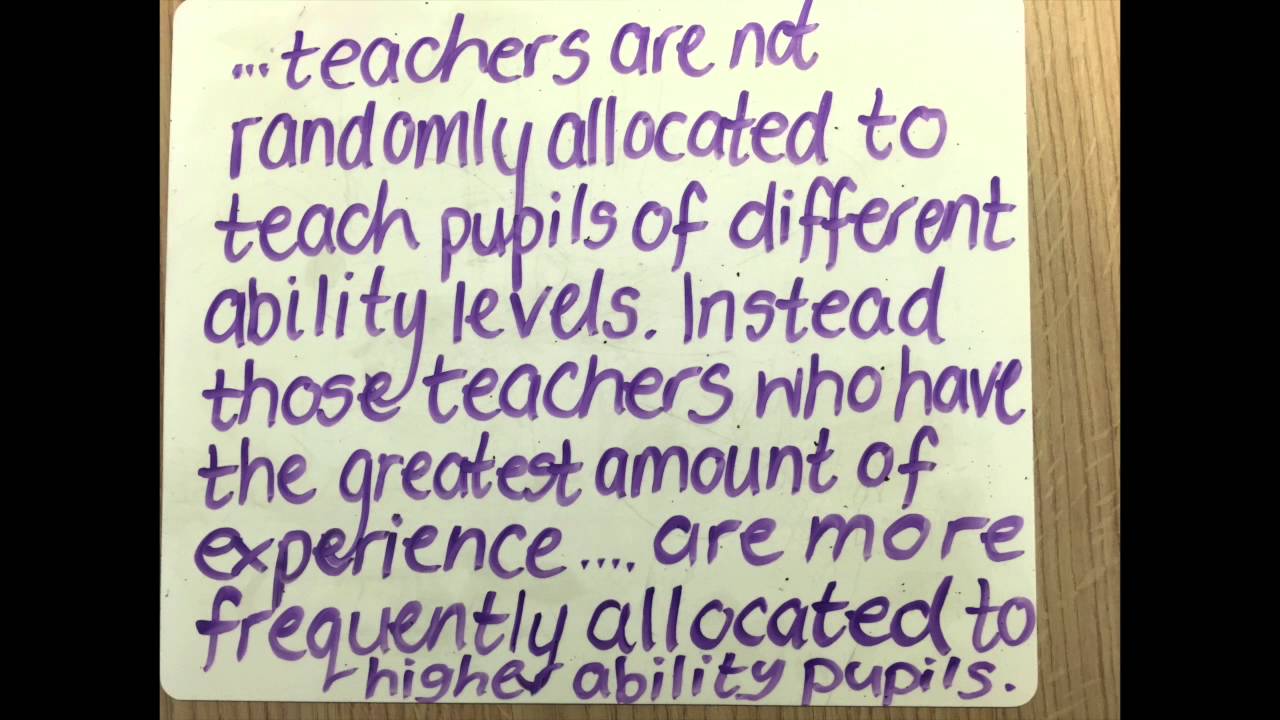 ...teachers are not
randomly allocated to
teach pupils of different
ability levels. Instead
those teachers who have
the greatest amount of
experience.... are more
frequently allocated to
higher ability pupils.